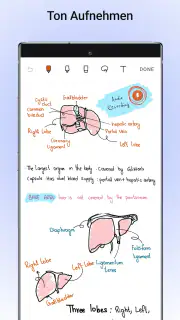 Ton Aufnehmen
T
DONE
Cystic duct
Gallbladder
Audio Recording
Common
hepatic artery
Portal vein
Right Lobe
Left Lobe
Coronary Ligament
The largest organ in the body. Covered by Glisson's
capsule. Has dual blood supply: portal vein + hepatic artery
BARE AREA
Diaphragm
Falciform Ligament
Right Lobe
Left Lobe
Gallbladder
Three lobes: Right, Left,